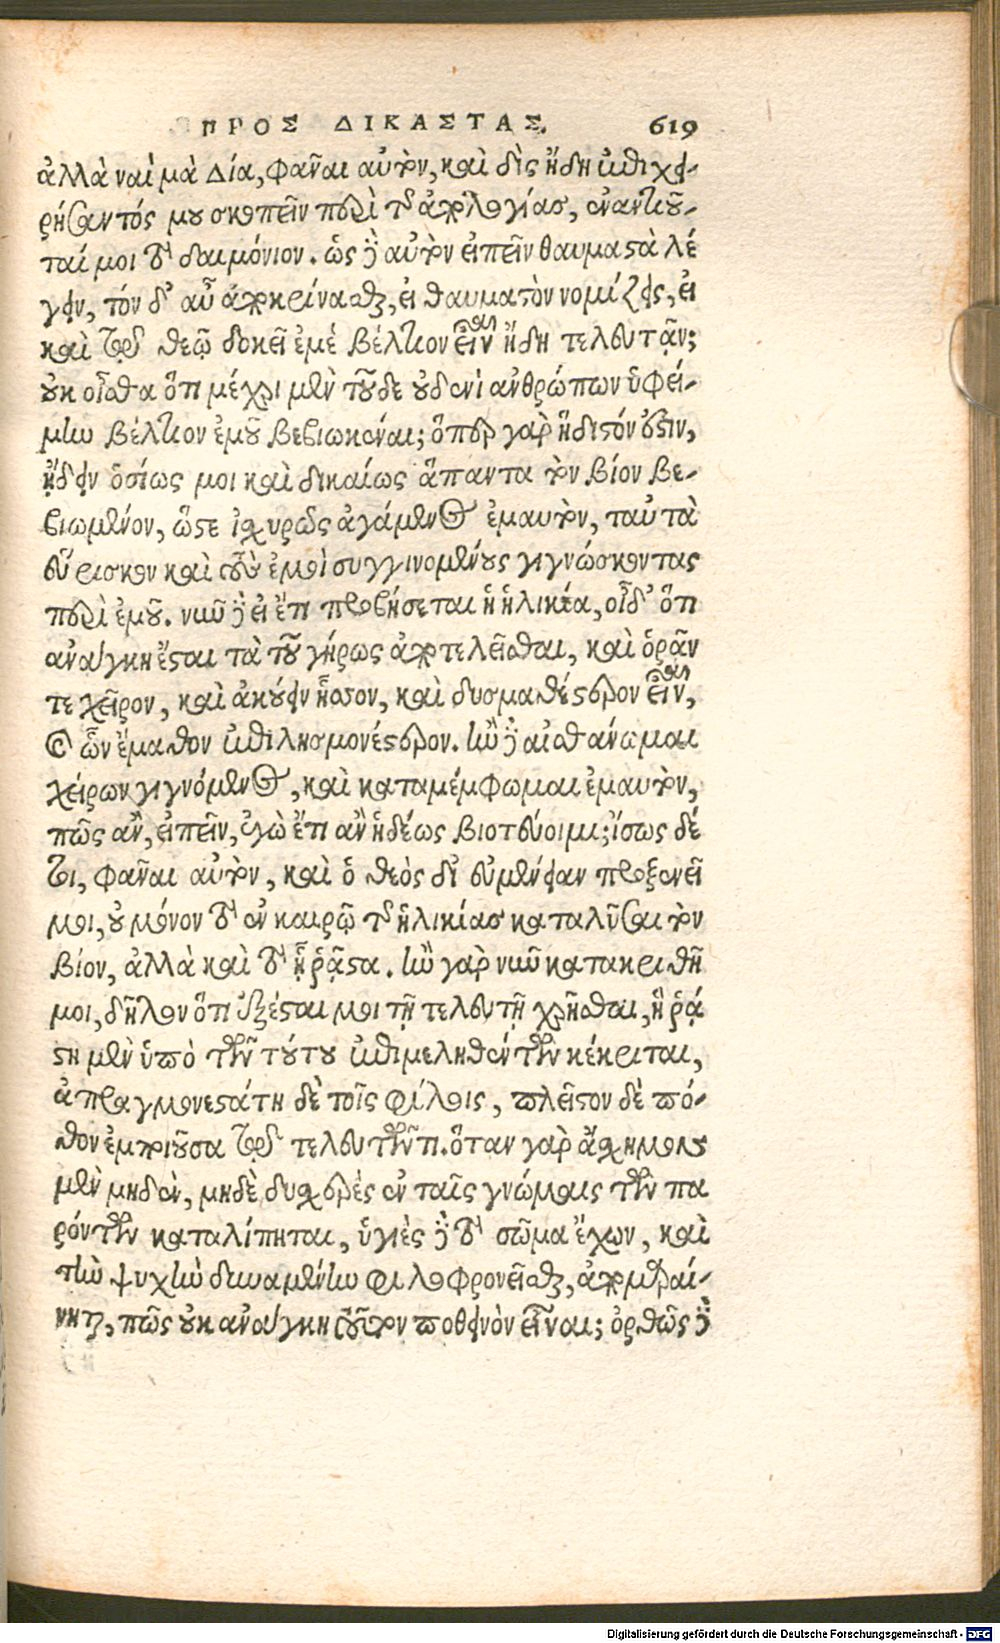 ΠΡΟΣ ΔΙΚΑΣΤΑΣ. 619
ἀλλὰ ναὶ μὰ Δία, φᾶναι αὐτὸν, καὶ δὶς ἤδη ἐπιχει-
ρήσαντός μου σκοπεῖν περὶ τῆς ἀπολογίας, ἐναντιοῦ-
ταί μοι τὸ δαιμόνιον. ὡς δὲ αὐτὸν εἰπεῖν θαυμαστὰ λέ
γειν, τόν δ' αὖ ἀποκρίνασθαι, εἰ θαυμαστὸν νομίζεις, εἰ
καὶ τῷ θεῷ δοκεῖ ἐμὲ βέλτιον εἶναι ἤδη τελευτᾷν;
οὐκ οἶσθα ὅτι μέχρι μὲν τοῦδε οὐδενὶ ἀνθρώπων ὑφεί-
μην βέλτιον ἐμοῦ βεβιωκέναι; ὅπερ γὰρ ἥδιστόν ἐστιν,
ᾔδειν ὁσίως μοι καὶ δικαίως ἅπαντα τὸν βίον βε-
βιωμένον, ὥστε ἰσχυρῶς ἀγάμενος ἐμαυτὸν, ταὐτὰ
εὕρισκον καὶ τοὺς ἐμοὶ συγγινομένους γιγνώσκοντας
περὶ ἐμοῦ. νῦν δὲ εἰ ἔτι προβήσεται ἡ ἡλικία, οἶδ' ὅτι
ἀνάγκη ἔσται τὰ τοῦ γήρως ἀποτελεῖσθαι, καὶ ὁρᾶν
τε χεῖρον, καὶ ἀκούειν ἧσσον, καὶ δυσμαθέστερον εἶναι,
καὶ ὧν ἔμαθον ἐπιλησμονέστερον. ἢν δὲ αἰσθάνωμαι
χείρων γιγνόμενος, καὶ καταμέμφωμαι ἐμαυτὸν,
πῶς ἂν, εἰπεῖν, ἐγὼ ἔτι ἂν ἡδέως βιοτεύοιμι; ἴσως δέ
τι, φᾶναι αὐτὸν, καὶ ὁ θεὸς δι' εὐμένειαν προξενεῖ
μοι, οὐ μόνον τὸ ἐν καιρῷ τῆς ἡλικίας καταλῦσαι τὸν
βίον, ἀλλὰ καὶ τὸ ᾗ ῥᾷστα. ἢν γὰρ νῦν κατακριθῇ
μοι, δῆλον ὅτι ἐξέσται μοι τῇ τελευτῇ χρῆσθαι, ἣ ῥᾴ
στη μὲν ὑπὸ τῶν τούτου ἐπιμεληθέντων κέκριται,
ἀπραγμονεστάτη δὲ τοῖς φίλοις, πλεῖστον δὲ πό-
θον ἐμποιοῦσα τοῦ τελευτῶντι. ὅταν γὰρ ἄσχημον
μὲν μηδὲν, μηδὲ δυσχερὲς ἐν ταῖς γνώμαις τῶν πα
ρόντων καταλίπηται, ὑγιὲς δὲ τὸ σῶμα ἔχων, καὶ
τὴν ψυχὴν δυναμένην φιλοφρονεῖσθαι, ἀπομαραί-
νηται, πῶς οὐκ ἀνάγκη τοῦτον ποθεινὸν εἶναι; ὀρθῶς δὲ
Digitalisierung gefördert durch die Deutsche Forschungsgemeinschaft - DFG